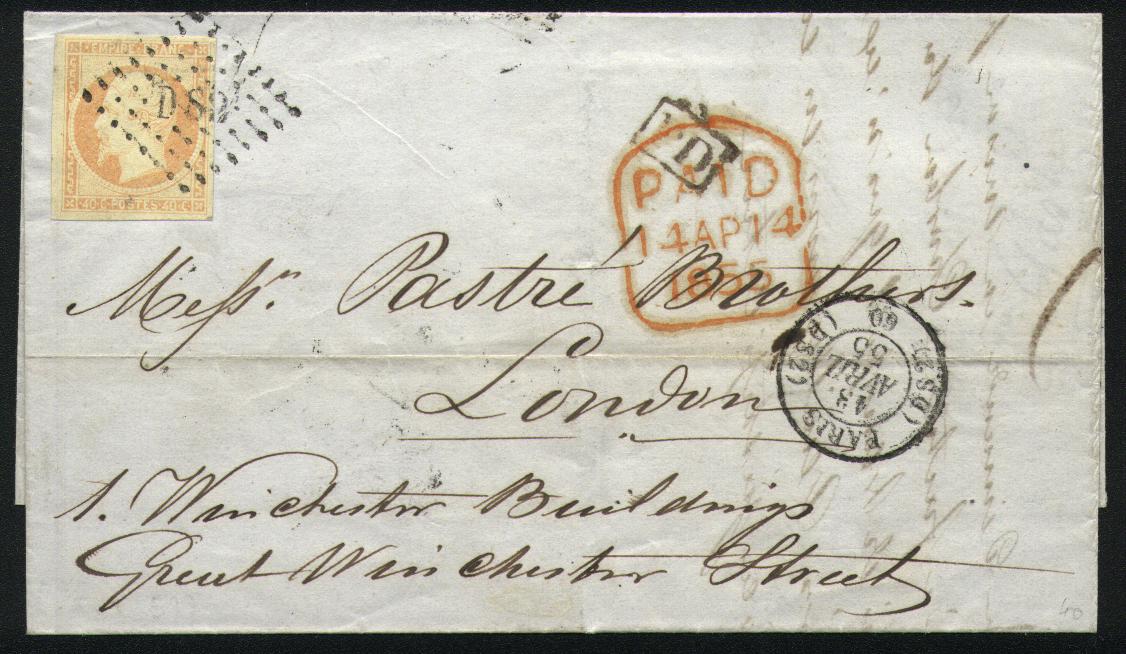 EMPIRE FRANC
DS2
40 C POSTES 40 C
PD
PAID
14 AP 14
1855
Messrs. Pastré Brothers.
London
PARIS (DS2) 60 (DS2)
13
AVRIL
55
1. Winchester Buildings
Great Winchester Street
40